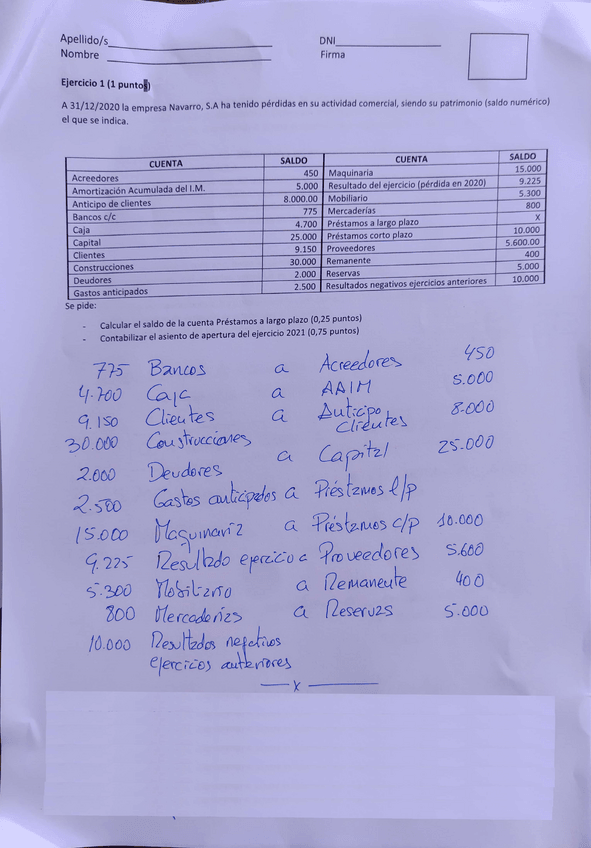 Apellido/s DNI
Nombre Firma
Ejercicio 1 (1 puntos)
A 31/12/2020 la empresa Navarro, S.A ha tenido pérdidas en su actividad comercial, siendo su patrimonio (saldo numérico)
el que se indica.
CUENTA SALDO CUENTA SALDO
Acreedores 450 Maquinaria 15.000
Amortización Acumulada del I.M. 5.000 Resultado del ejercicio (pérdida en 2020) 9.225
Anticipo de clientes 8.000.00 Mobiliario 5.300
Bancos c/c 775 Mercaderías 800
Caja 4.700 Préstamos a largo plazo X
Capital 25.000 Préstamos corto plazo 10.000
Clientes 9.150 Proveedores 5.600.00
Construcciones 30.000 Remanente 400
Deudores 2.000 Reservas 5.000
Gastos anticipados 2.500 Resultados negativos ejercicios anteriores 10.000
Se pide:
- Calcular el saldo de la cuenta Préstamos a largo plazo (0,25 puntos)
- Contabilizar el asiento de apertura del ejercicio 2021 (0,75 puntos)
775 Bancos a Acreedores 450
4.700 Caja a AAIM 5.000
9.150 Clientes a Anticipo clientes 8.000
30.000 Construcciones
a Capital 25.000
2.000 Deudores
2.500 Gastos anticipados a Préstamos l/p
15.000 Maquinaria a Préstamos c/p 10.000
9.225 Resultado ejercicio a Proveedores 5.600
5.300 Mobiliario a Remanente 400
800 Mercaderías a Reservas 5.000
10.000 Resultados negativos
ejercicios anteriores
x